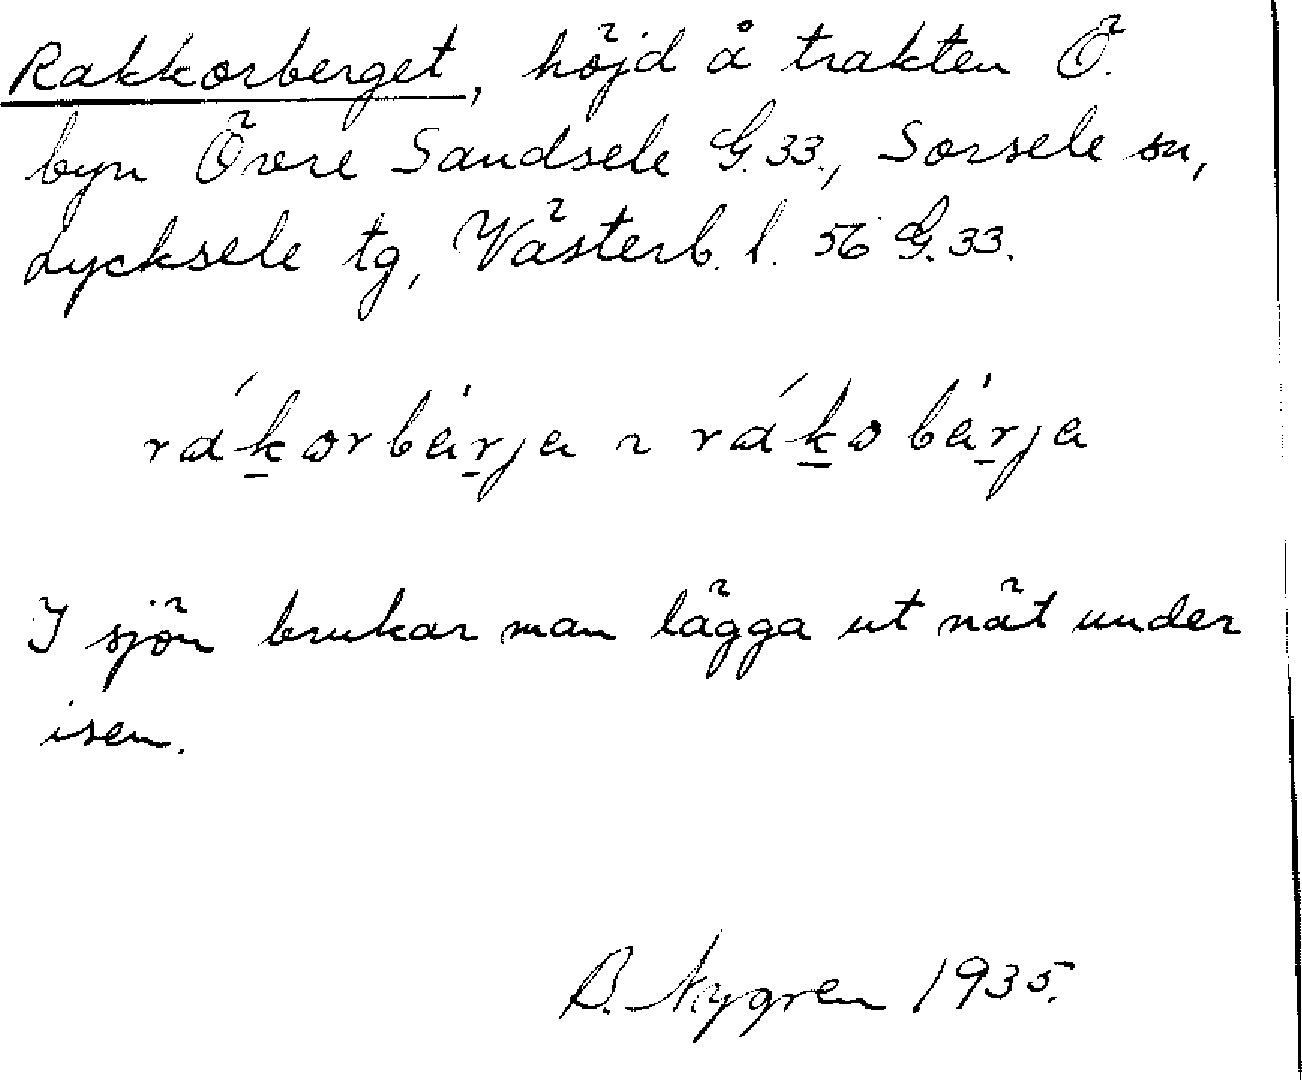 Rakkorberget, höjd å trakten Ö.
byn Övre Sandsele G.33., Sorsele sn,
Lycksele tg, Västerb. l. 56 G.33.
rákorbärja ~ rákobärja
I sjön brukar man lägga ut nät under
isen.
B. Nygren 1935.